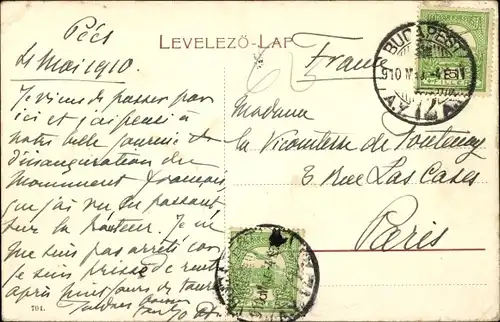 Pécs
LEVELEZŐ-LAP
4 Mai 1910
France
BUDAPEST
910
Je viens de passer par
ici et j'ai pensé à
notre belle journée de
l'inauguration du
Monument français,
que j'ai vu en passant
sur la hauteur. Je ne
me suis pas arrêté car
je suis pressé de rentrer
après huit jours de
Madame
la Vicomtesse de Fontenay
3 Rue Las Cases
Paris
701.